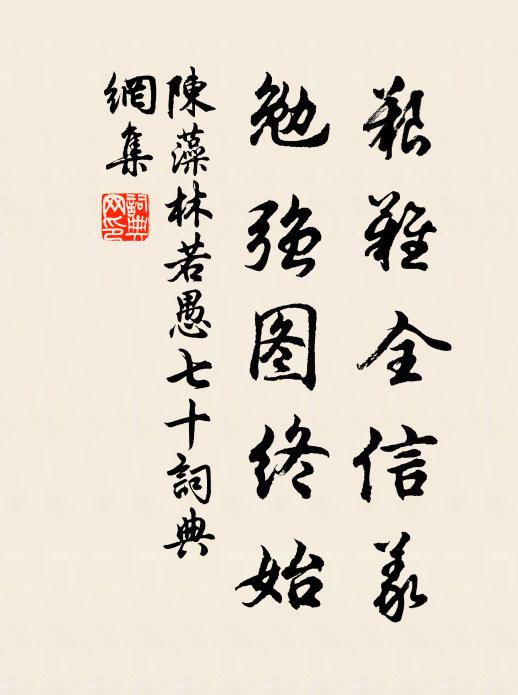 艱難全信義
勉強图終始
陳藻林若愚七十詞典
網集
詞典网印